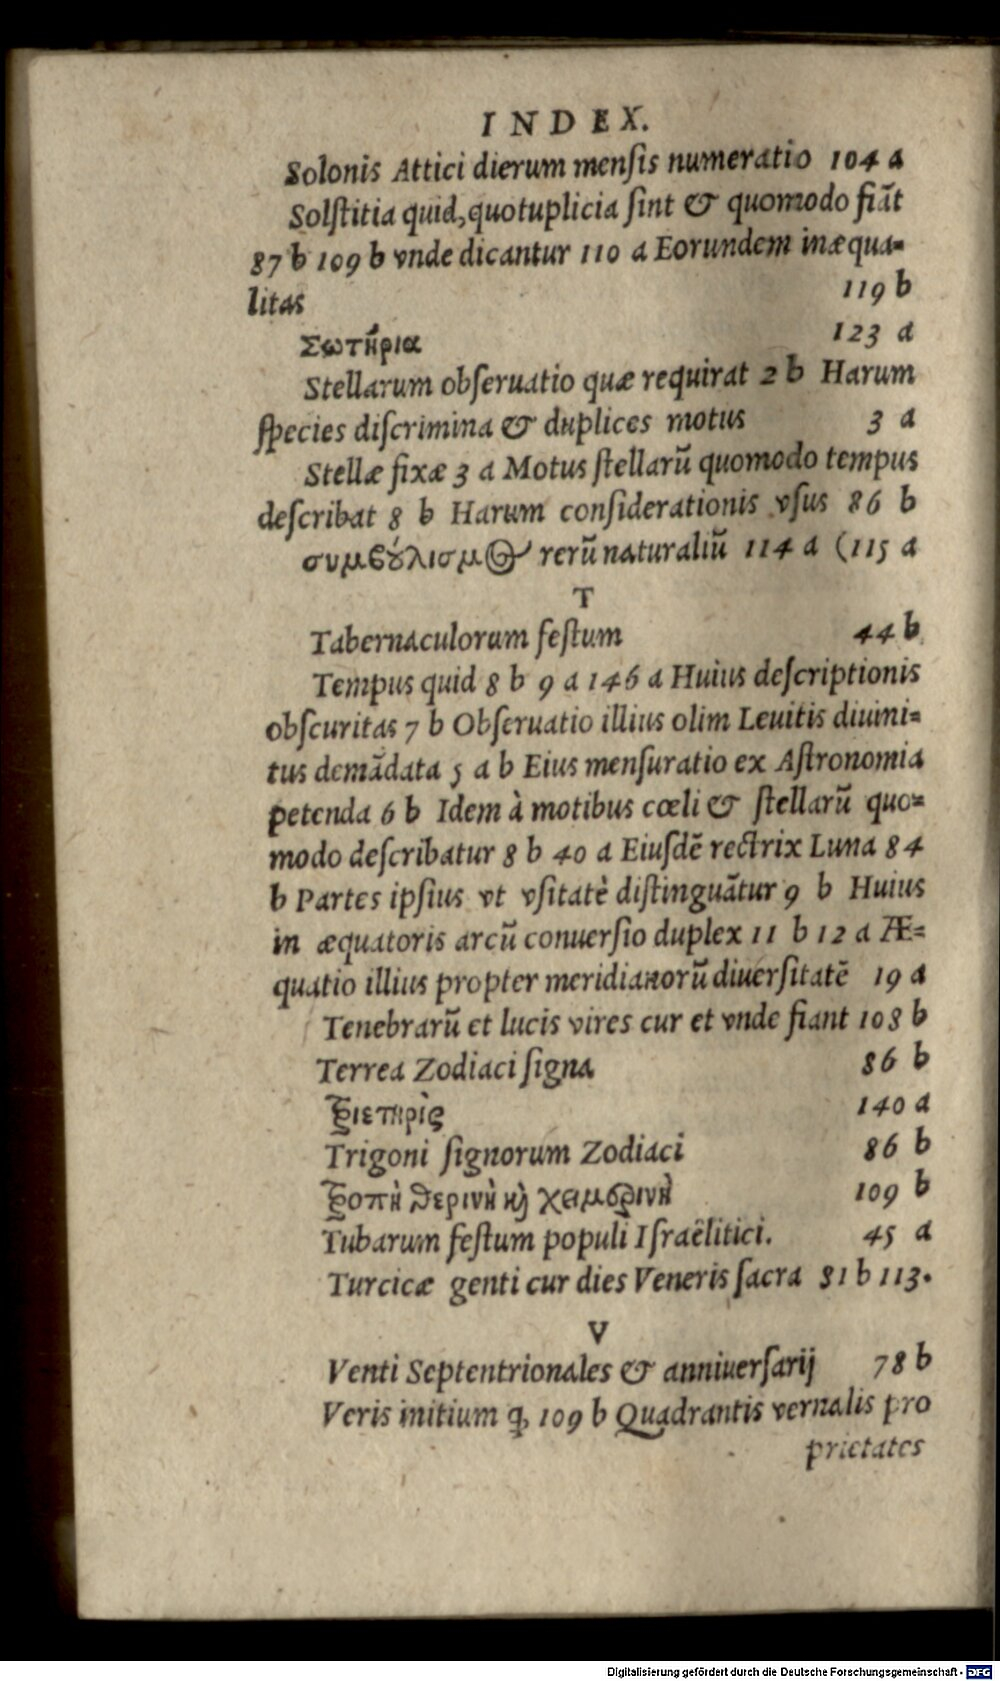 INDEX.
Solonis Attici dierum menſis numeratio 104 a
Solſtitia quid, quotuplicia ſint & quomodo fiāt
87 b 109 b vnde dicantur 110 a Eorundem inæqua=
litas 119 b
Σωτήρια 123 a
Stellarum obſeruatio quæ requirat 2 b Harum
ſpecies diſcrimina & duplices motus 3 a
Stellæ fixæ 3 a Motus ſtellarū quomodo tempus
deſcribat 8 b Harum conſiderationis vſus 86 b
συμβȣ́λισμος rerū naturaliū 114 a (115 a
T
Tabernaculorum feſtum 44 b
Tempus quid 8 b 9 a 146 a Huius deſcriptionis
obſcuritas 7 b Obſeruatio illius olim Leuitis diuini=
tus demādata 5 a b Eius menſuratio ex Aſtronomia
petenda 6 b Idem à motibus cœli & ſtellarū quo=
modo deſcribatur 8 b 40 a Eiuſdē rectrix Luna 84
b Partes ipſius vt vſitatè diſtinguātur 9 b Huius
in æquatoris arcū conuerſio duplex 11 b 12 a Æ=
quatio illius propter meridianorū diuerſitatē 19 a
Tenebrarū et lucis vires cur et vnde fiant 108 b
Terrea Zodiaci ſigna 86 b
τριετηρὶς 140 a
Trigoni ſignorum Zodiaci 86 b
τροπὴ θερινὴ ϗ̀ χειμερινὴ 109 b
Tubarum feſtum populi Iſraëlitici. 45 a
Turcicæ genti cur dies Veneris ſacra 81 b 113.
V
Venti Septentrionales & anniuerſarij 78 b
Veris initium q, 109 b Quadrantis vernalis pro
prietates
Digitalisierung gefördert durch die Deutsche Forschungsgemeinschaft - DFG